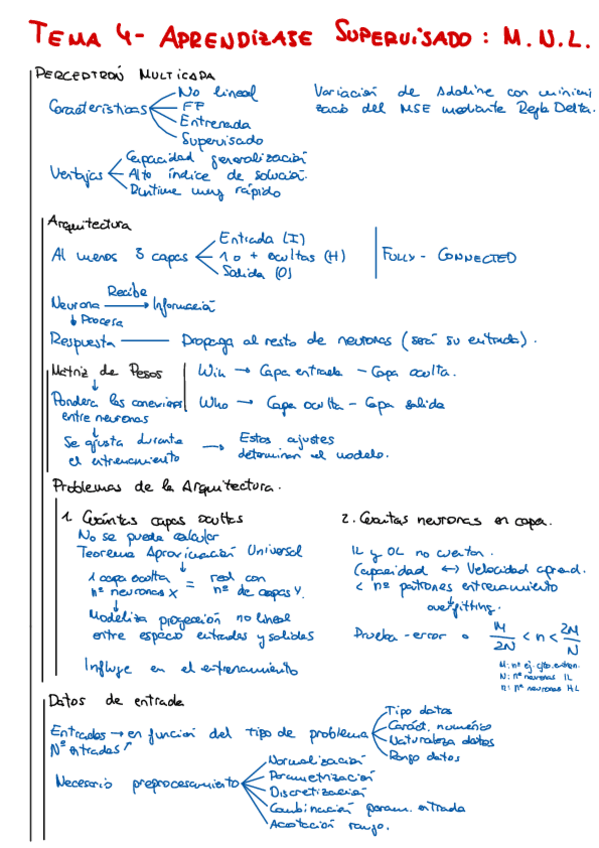 TEMA 4- APRENDIZAJE SUPERVISADO: M.N.L.
PERCEPTRÓN MULTICAPA
Características
No lineal
FF
Entrenada
Supervisado
Variación de Adaline con minimi
zació del MSE mediante Regla Delta.
Ventajas
Capacidad generalización
Alto índice de solución.
Runtime muy rápido
Arquitectura
Al menos 3 capas
Entrada (I)
1 o + ocultas (H)
Salida (O)
FULLY - CONNECTED
Neurona Recibe Información
Procesa
Respuesta Propaga al resto de neuronas (será su entrada).
Matriz de Pesos
Wih → Capa entrada - Capa oculta.
Pondera las conexiones
entre neuronas
Who → Capa oculta - Capa salida
Se ajusta durante
el entrenamiento
→ Estos ajustes
determinan el modelo.
Problemas de la Arquitectura.
1. Cuántas capas ocultas
No se puede calcular
Teorema Aproximación Universal
1 capa oculta = red con
nº neuronas X nº de capas Y.
Modeliza proyección no lineal
entre espacio entradas y salidas
Influye en el entrenamiento
2. Cuantas neuronas en capa.
IL y OL no cuentan.
Capacidad ↔ Velocidad aprend.
< nº patrones entrenamiento
overfitting.
Prueba-error o M/2N < n < 2M/N
M: nº ej. cjto. entren.
N: nº neuronas IL
n: nº neuronas HL
Datos de entrada
Entradas → en función del tipo de problema
Nº entradas
Tipo datos
Caráct. numérico
Naturaleza datos
Rango datos
Necesario preprocesamiento
Normalización
Parametrización
Discretización
Combinación param. entrada
Acotación rango.